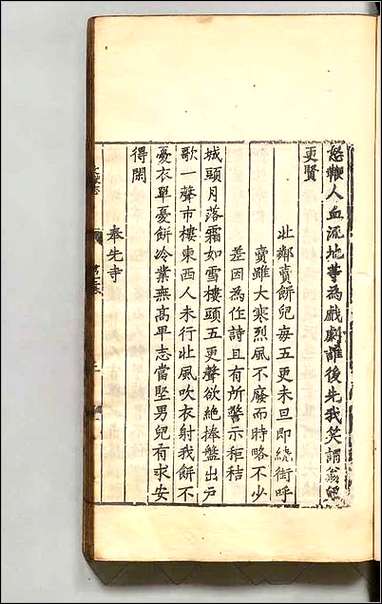 怒鞭人血流地等為戲劇誰後先我笑謂翁兒
更賢
北鄰賣餅兒每五更未旦即繞街呼
賣雖大寒烈風不廢而時略不少
差因為作詩且有所警示秬秸
城頭月落霜如雪樓頭五更聲欲絕捧盤出戶
歌一聲市樓東西人未行北風吹衣射我餅不
憂衣單憂餅冷業無高卑志當堅男兒有求安
得閑
奉先寺